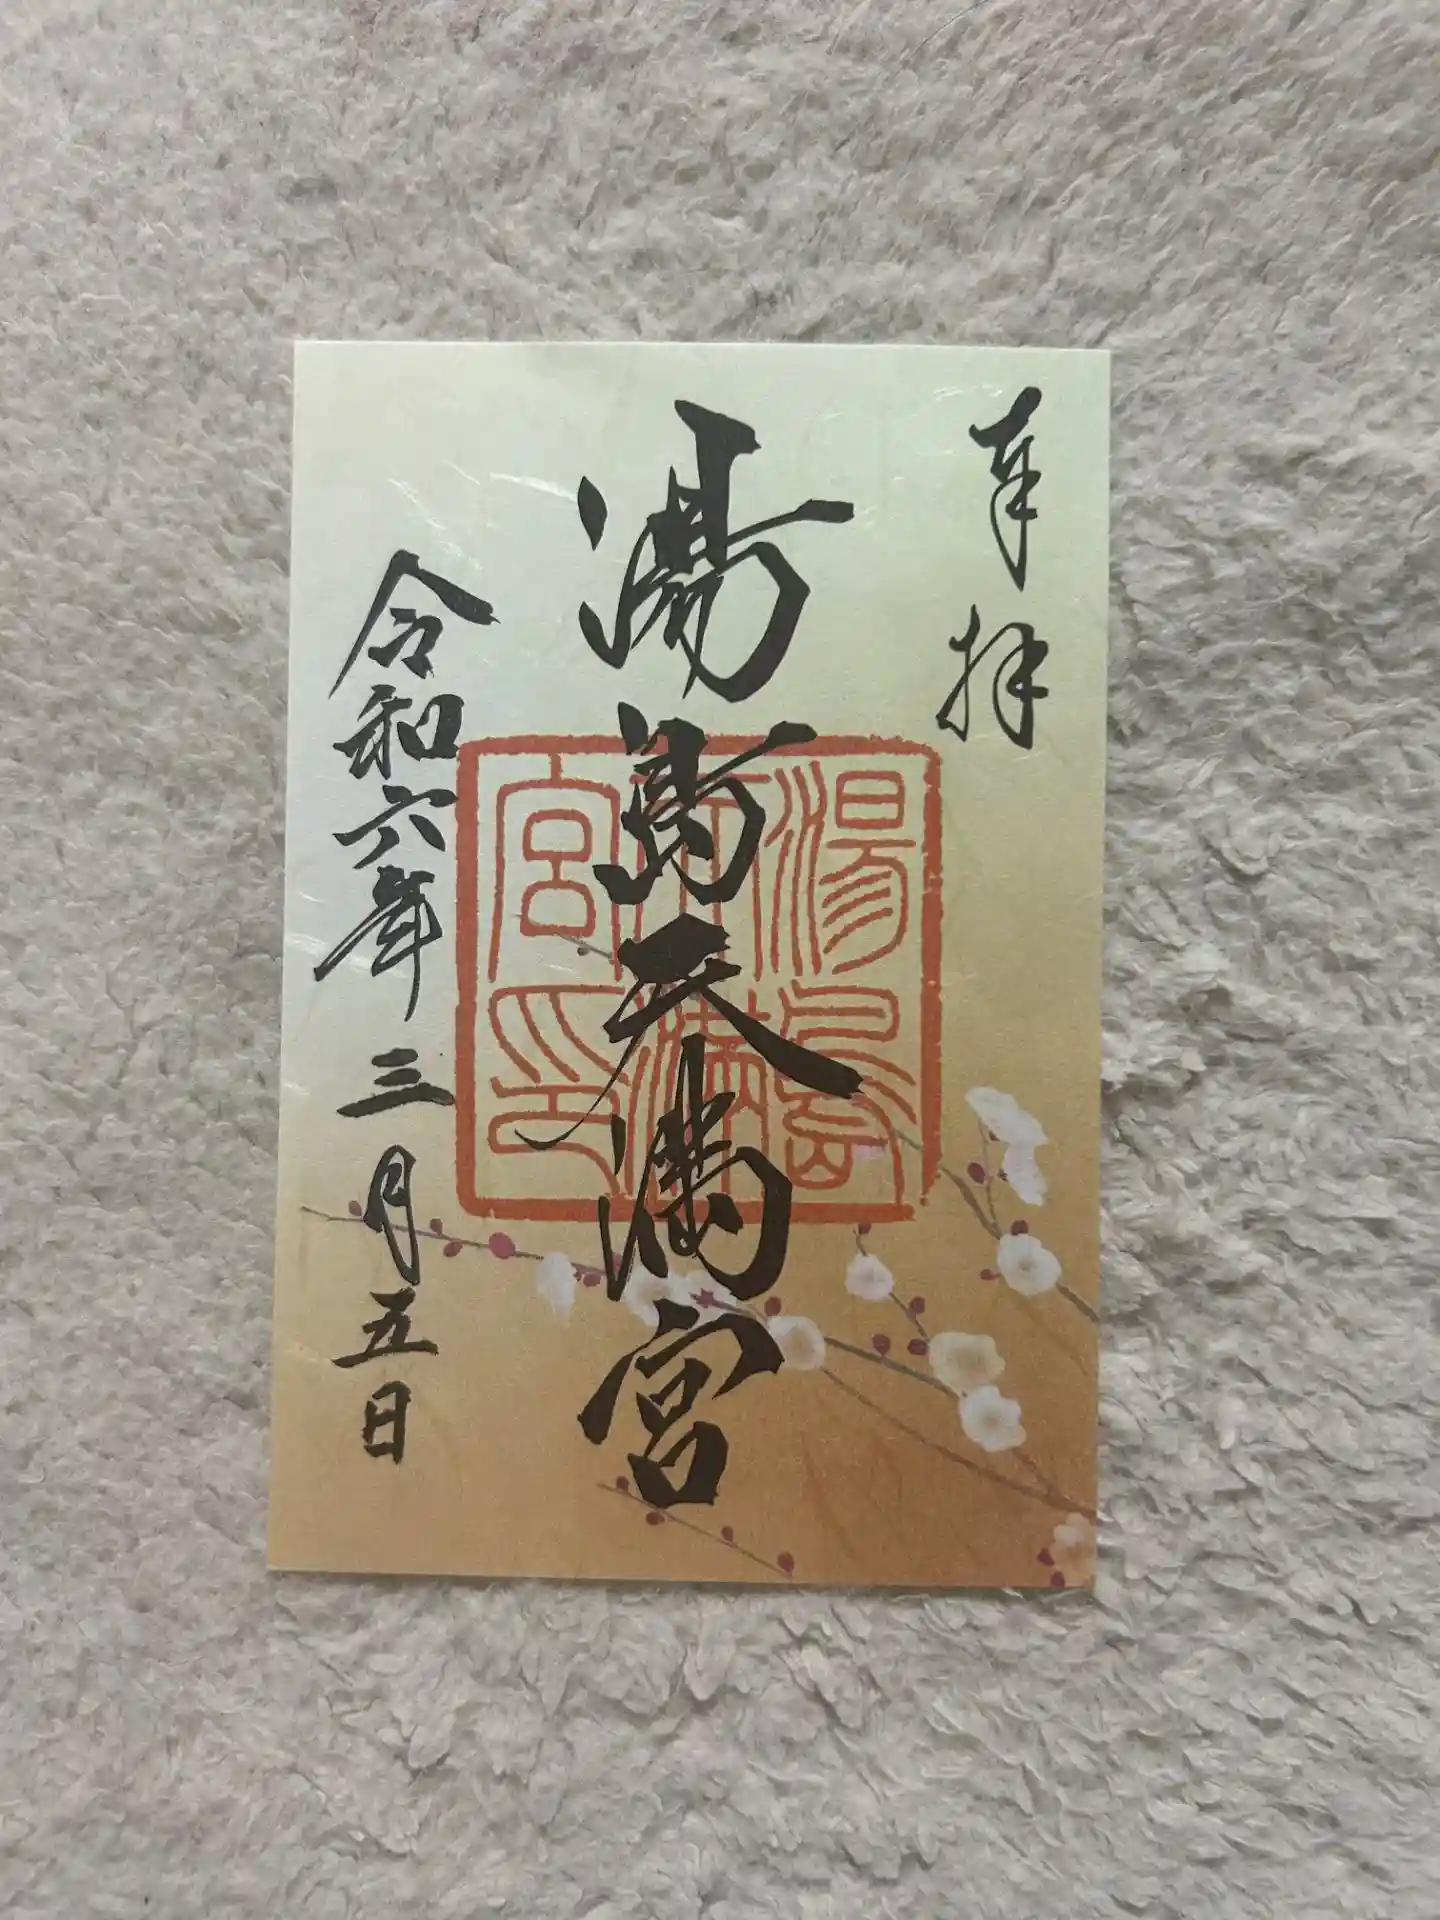 奉拝
湯島天満宮
湯島天満宮印
令和六年三月五日